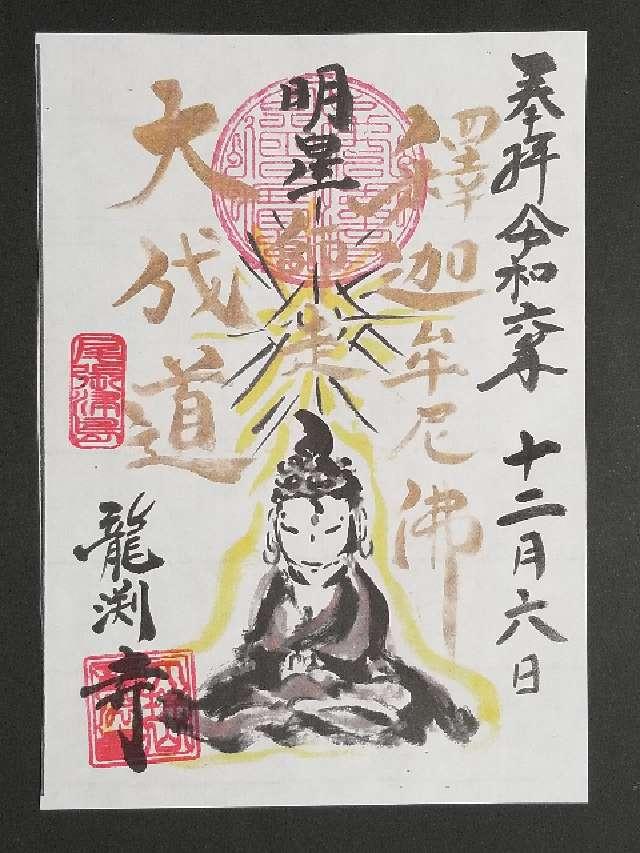 奉拝 令和六年 十二月六日
釋迦牟尼佛
明星
師走
大成道
尾張津島
龍渕寺